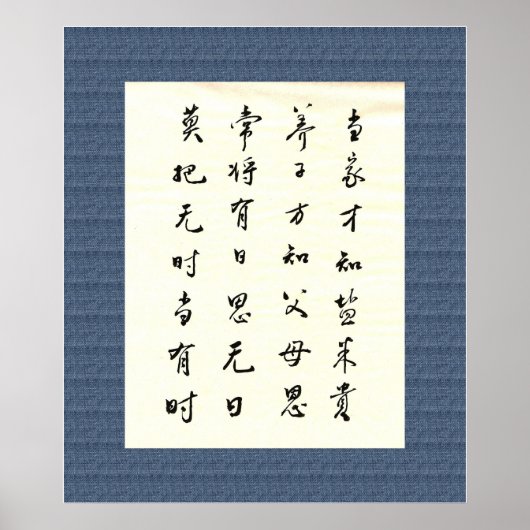 当家才知盐米贵
养子方知父母恩
常将有日思无日
莫把无时当有时